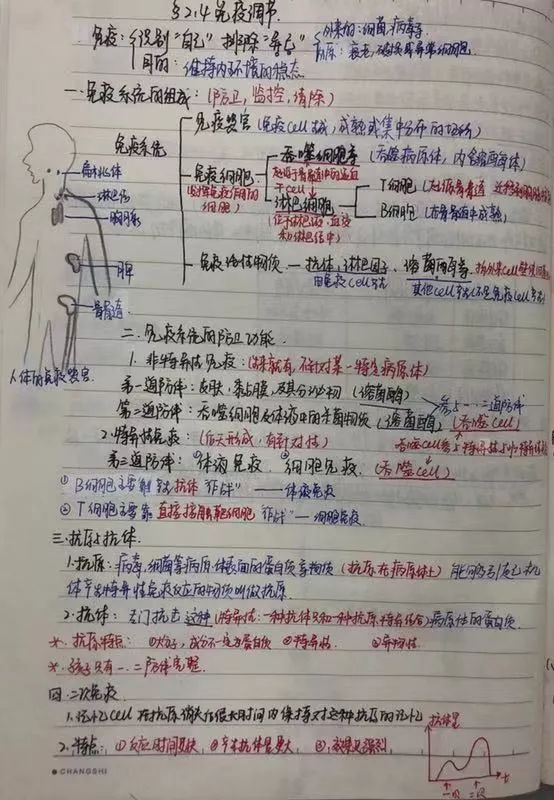 §2.4 免疫调节
免疫：识别"自己" 排除"异己" 外来的：细菌，病毒等
目的：维持内环境的稳态 衰老，破损或异常细胞
一.免疫系统的组成：(防卫，监控，清除)
免疫器官 (免疫cell生成，成熟或集中分布的场所)
免疫系统
吞噬细胞等 (吞噬病原体，内含溶酶体)
免疫细胞
发挥免疫作用的细胞
扁桃体
淋巴结
胸腺
淋巴细胞
(位于淋巴液、血液和淋巴结中)
T细胞
B细胞 (在骨髓中成熟)
脾
免疫活性物质 — 抗体，淋巴因子、溶菌酶等
由免疫cell产生
骨髓
人体的免疫器官
二.免疫系统的防卫功能
1.非特异性免疫：(生来就有，不针对某一特定病原体)
第一道防线：皮肤，黏膜，及其分泌物 (溶菌酶)
参与一.二道防线
第二道防线：吞噬细胞及体液中的杀菌物质 (溶菌酶) (吞噬cell)
2.特异性免疫：(后天形成，有针对性)
第三道防线：①体液免疫 ②细胞免疫 (吞噬cell)
① B细胞主要靠 抗体"作战" —— 体液免疫
② T细胞主要靠直接接触靶细胞"作战" — 细胞免疫
三.抗原与抗体
1.抗原：病毒，细菌等病原体表面的蛋白质等物质 (抗原在病原体上) 能够引起机
体产生特异性免疫反应的物质叫做抗原
2.抗体：专门抗击这种 (特异性：一种抗体只和一种抗原特异结合) 病原体的蛋白质
*. 抗原特点：①大分子，成分不一定为蛋白质 ②特异性 ③异物性
*. 孩子只有一.二防线完整
四.二次免疫
1.记忆cell 在抗原消失后很长时间内保持对这种抗原的记忆
2.特点：①反应时间更快，②产生抗体量更大，③效果更强烈，
抗体量
t
一次 二次
CHANGSHI